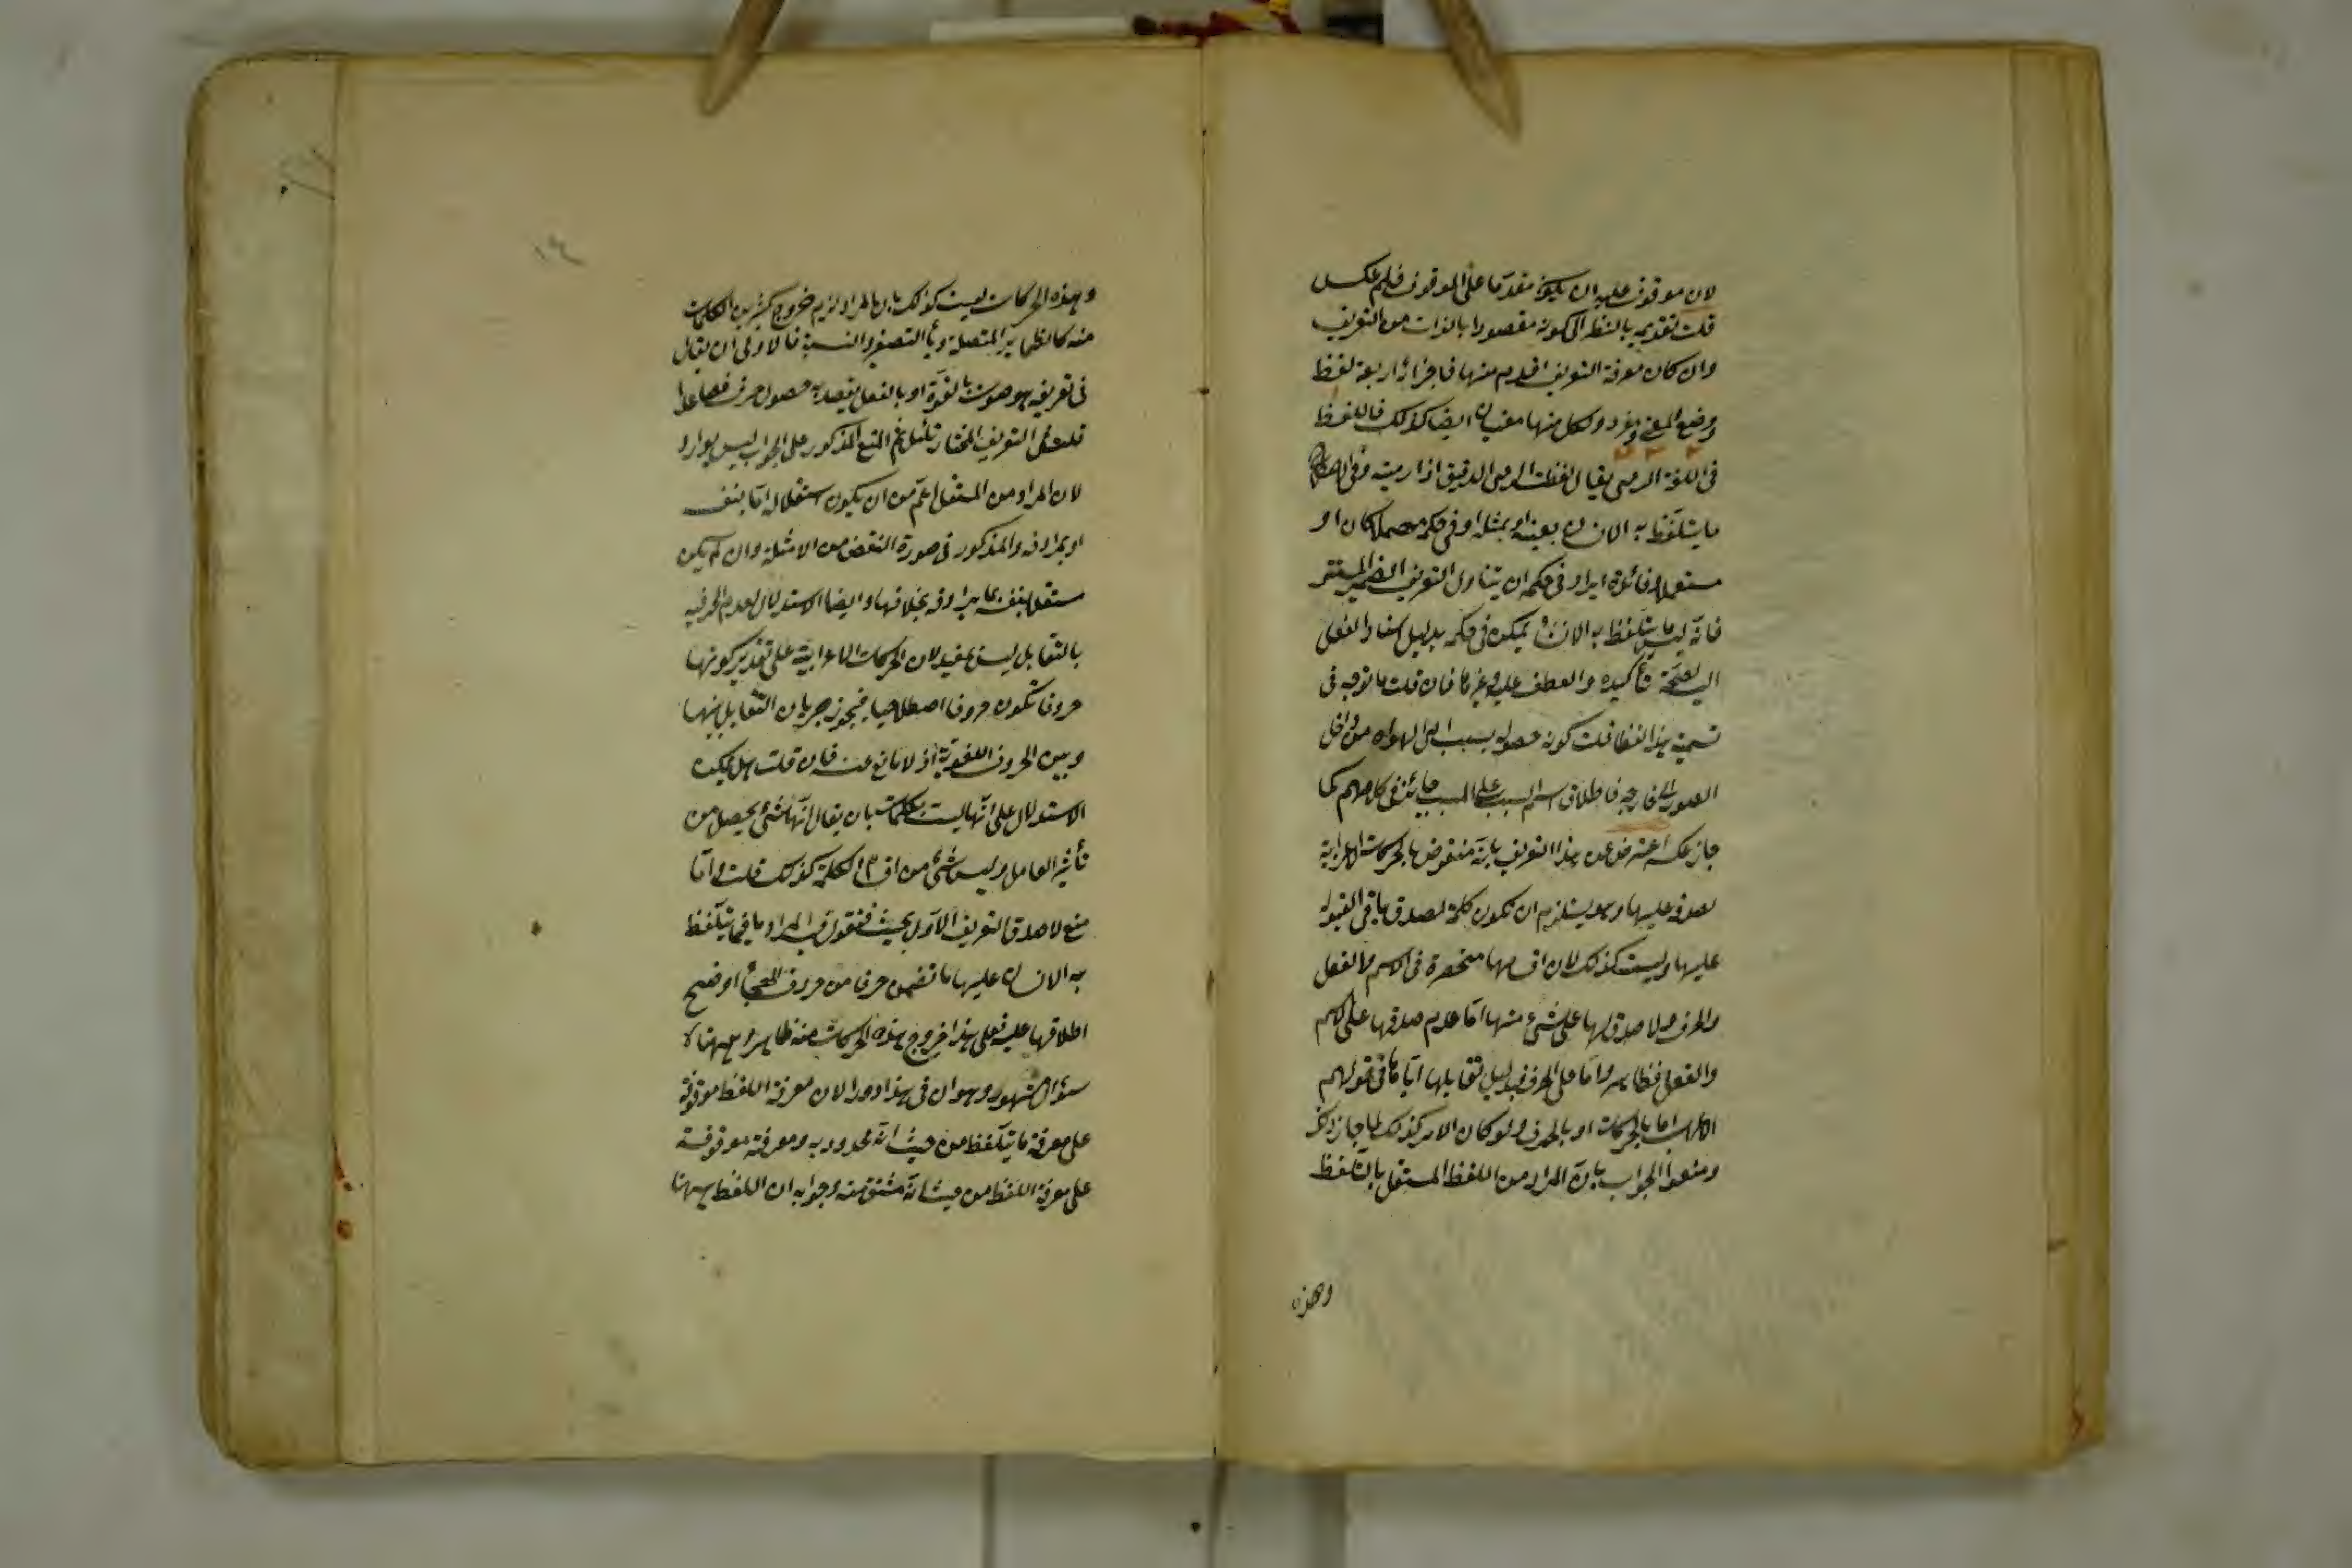 لان موقوف عليه ان يكون مقدما على الموقوف فلم عكس
قلت تقديمه بالنظر الى كونه مقصودا بالذات من التعريف
وان كان معرفة التعريف اقدم منها فاجزائه اربعة لفظ
ووضع المعنى ومفرد ولكل منها معنيان ايضا كذلك فاللفظ
فى اللغة الرمى يقال لفظت الرحى الدقيق اذا رميته وفى الاصطلاح
ما يتلفظ به الانسان بعينه او بمثله او فى حكمه مهملا كان او
مستعملا وفائدة ايراد فى حكمه ان يتناول التعريف الضمير المستتر
فانه ليس ما يتلفظ به الانسان لكن فى حكمه بدليل اسناد الفعل
اليه لصحة تأكيده والعطف عليه وغيرها فان قلت ما توجه فى
تسمية هذا اللفظ قلت كونه حصوله بسبب الهواء من داخل
الصدر الى خارجه فاطلاق اسم السبب على المسبب جائز فى كلامهم كما
جاز عكسه اعترض عن هذا التعريف بانه منقوض بالحركات الاعرابية
لصدقه عليها وهو يستلزم ان تكون كلمة لصدق باقى القيود
عليها وليست كذلك لان اقسامها منحصرة فى الاسم والفعل
والحرف ولا صدق لها على شئ منها اما عدم صدقها على الاسم
والفعل فظاهر واما على الحرف فبدليل تقابلها اياها فى قولهم
الاعراب اما بالحركات او بالحرف ولو كان الامر كذلك لما جاز ذكر
ومنعوا الجواب بان المراد من اللفظ المستقل بالتلفظ
وهذه
وهذه الحركات ليست كذلك بان المراد لزيم خروج كثير من الكلمات
منه كالضمائر المتصلة وياء التصغير والنسبة فالاولى ان يقال
فى تعريفه هو صوت بالقوة او بالفعل يقصد به حصول حرف فصاعدا
قلت على التعريف المختار تأمل ثم المنع المذكور على الجواب ليس بوارد
لان المراد من المستقل اعم من ان يكون استقلاله اما بنفسه
او بمرادفه والمذكور فى صورة النقض من الامثلة وان لم يكن
مستقلا بنفسه بما يرادفه بخلافها وايضا الاستدلال لعدم الحرفية
بالتقابل ليس بمفيد لان الحركات الاعرابية على تقدير كونها
حروفا تكون حروفا اصطلاحيا فيجوز جريان التقابل بينها
وبين الحروف اللغوية اذ لا مانع عنه فان قلت هل يمكن
الاستدلال على انها ليست بكلمات بان يقال انها شئ يحصل من
تأثير العامل وليس شئ من اقسام الكلمة كذلك قلت واما
منع لا صدق التعريف الاول بحيث فنقول المراد بما فيما يتلفظ
به الانسان عليها ما تضمن حرفا من حروف التهجى او صح
اطلاقها عليه فعلى هذا خروج هذه الحركات منه ظاهر وههنا
سؤال مشهور وهو ان فى هذا دورا لان معرفة اللفظ موقوفة
على معرفة ما يتلفظ من حيث انه محدود به ومعرفته موقوفة
على معرفة اللفظ من حيث انه مشتق منه وجوابه ان اللفظ ههنا